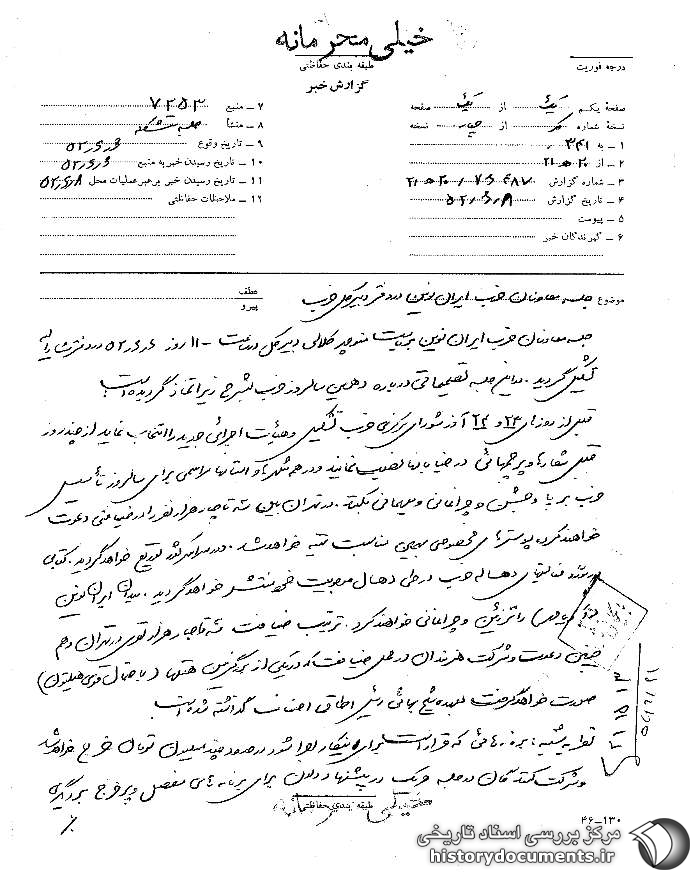 خیلی محرمانه
طبقه بندی حفاظتی
گزارش خبر
درجه فوریت
صفحه یکم از یک صفحه
نسخه شماره از چهار نسخه
۱ ــ به ۳۴۱
۲ ــ از ۲۰ ه ۲۱
۳ ــ شماره گزارش
۴ ــ تاریخ گزارش
۵ ــ پیوست
۶ ــ گیرندگان خبر
۷ ــ منبع ۷۲۵۳
۸ ــ منشأ جلسه متشکله
۹ ــ تاریخ وقوع
۱۰ ــ تاریخ رسیدن خبر به منبع
۱۱ ــ تاریخ رسیدن خبر برهبر عملیات محل
۱۲ ــ ملاحظات حفاظتی
موضوع جلسه معاونان حزب ایران نوین در دفتر دبیرکل حزب
عطف
پیرو
جلسه معاونان حزب ایران نوین بریاست منوچهر کلالی دبیرکل در ساعت ۱۱۰۰ روز ۵۲٫۶٫۶ در دفتر مشارالیه
تشکیل گردید. در این جلسه تصمیماتی درباره دهمین سالروز حزب بشرح زیر اتخاذ گردیده است:
قبل از روزهای ۲۳ و ۲۴ آذر شورای مرکزی حزب تشکیل و هیأت اجرائی جدید را انتخاب نماید از چند روز
قبل شعارها و پرچمهائی در خیابانها نصب نمایند و در همه شهرها و استانها مراسمی برای سالروز تأسیس
حزب برپا و جشن و چراغانی و میهمانی بکنند. در تهران بین سه تا چهار هزار نفر را در ضیافتی دعوت
خواهند کرد، پوسترهای مخصوصی بهمین مناسبت تهیه خواهد شد. و در سراسر کشور توزیع خواهد گردید. کتابی
فعالیتهای دهساله حزب در طی دهسال موجودیت خود منتشر خواهد گردید. میدان ایران نوین
را تزئین و چراغانی خواهند کرد. ترتیب ضیافت سه تا چهار هزار نفری در تهران و هم
چنین دعوت و شرکت هنرمندان در محل ضیافت که در یکی از بزرگترین هتلها (باحتمال قوی هیلتون)
صورت خواهد گرفت بعهده شیخ بهائی رئیس اطاق اصناف گذاشته شده است
نظریه شنبه: برنامه‌هائی که قرار است برای اینکار اجرا شود در حدود چند میلیون تومان خرج خواهد شد
و شرکت کنندگان در جلسه هریک در پیشنهاد دادن برای برنامه‌های مفصل و پرخرج
طبقه بندی حفاظتی
خیلی محرمانه
۴۶ــ۱۳۰
مرکز بررسی اسناد تاریخی
historydocuments.ir